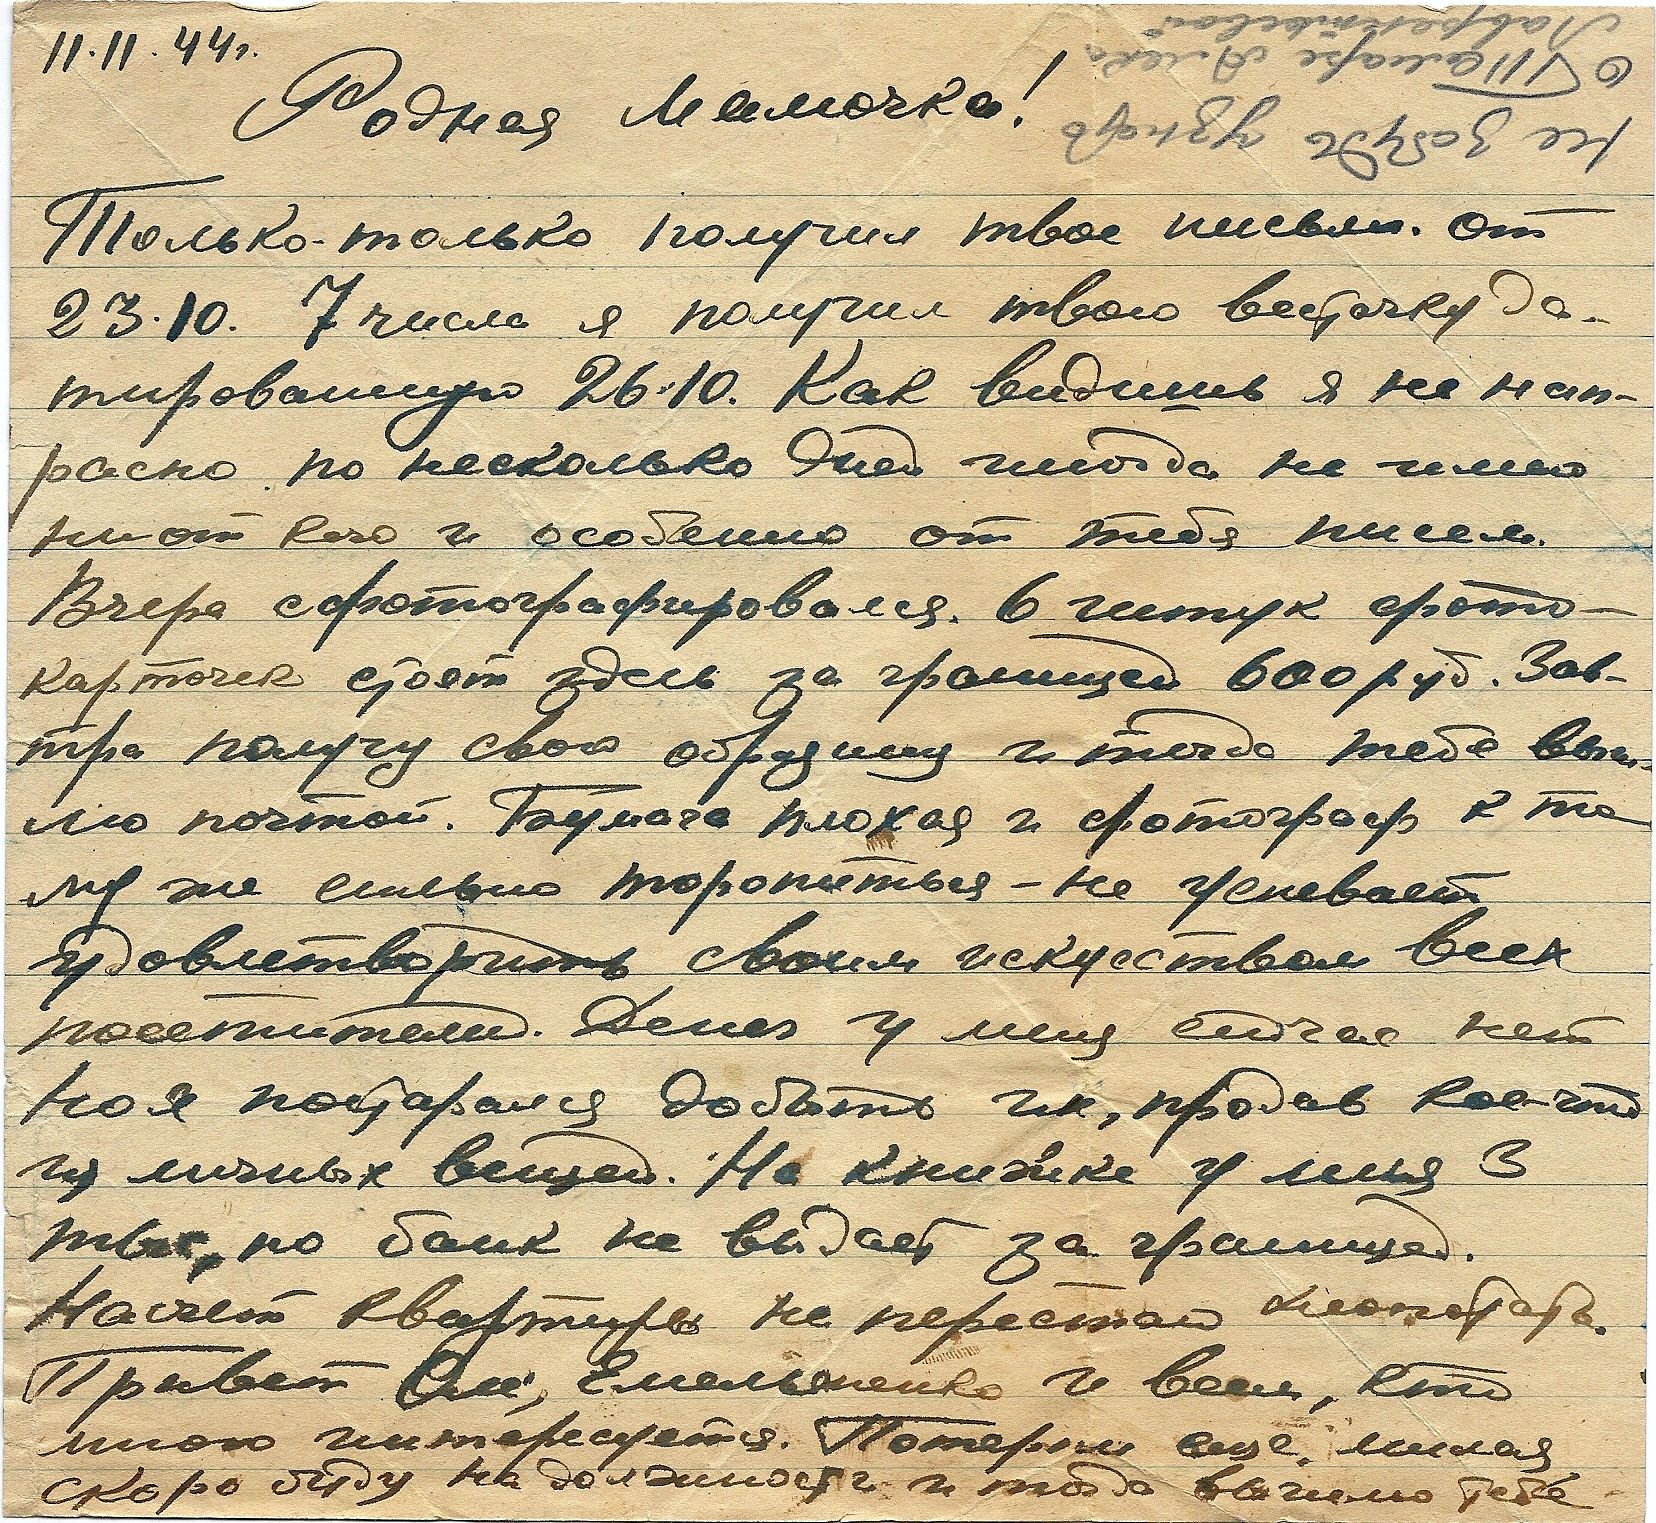 11.11.44г.
Родная Мамочка!
не забудь узнать
о Тамаре Алекс
Лаврентьевой
Только-только получил твое письм. от
23.10. 7 числа я получил твою весточку да-
тированную 26.10. Как видишь я не нап-
расно по несколько дней иногда не имею
ни от кого и особенно от тебя писем.
Вчера сфотографировался. 6 штук фото-
карточек стоят здесь за границей 600 руб. Зав-
тра получу свою образину и тогда тебе выш-
лю почтой. Бумага плохая и фотограф к то
му же сильно торопиться - не успевает
удовлетворить своим искусством всех
посетителей. Денег у меня сейчас нет
но я постарался добыть их, продав кое-что
из личных вещей. На книжке у меня 3
тыс, но банк не выдает за границей.
Насчет квартиры не перестаю хлопотать.
Привет Оле, Емельяненко и всем, кто
мною интересуется. Потерпи еще, милая
скоро буду на должности и тогда вышлю тебе